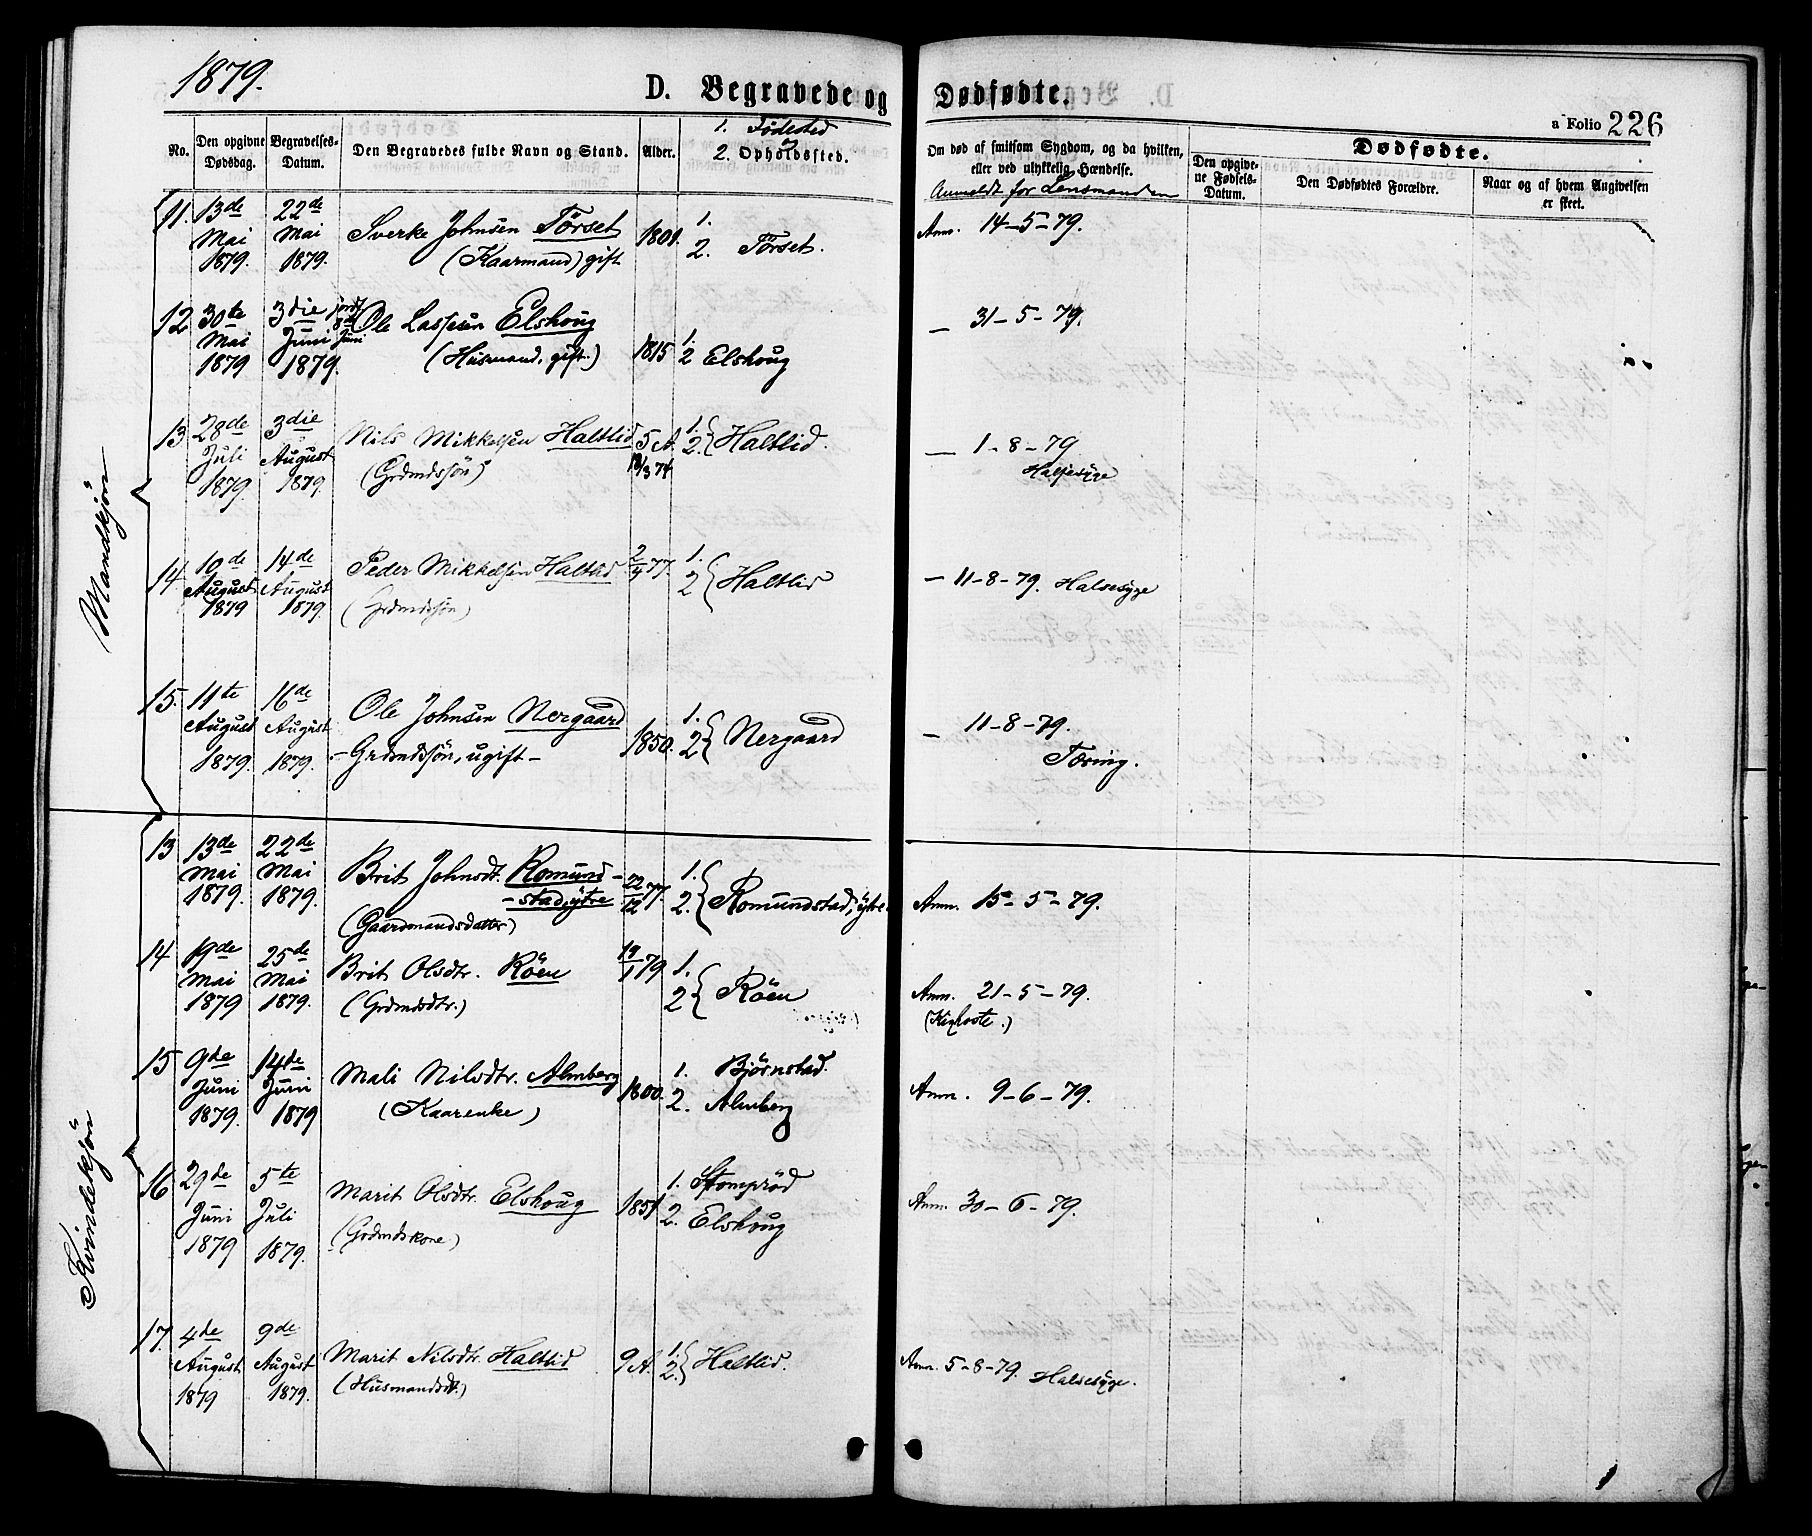 1879.
D. Begravede og Dødfødte.
a Folio 226
No.
Den opgivne Dødsdag.
Begravelses-Datum.
Den Begravedes fulde Navn og Stand.
Alder.
1. Fødested
2. Opholdssted.
Om død af smitsom Sygdom, og da hvilken,
eller ved ulykkelig Hændelse.
Anmeldt for Lensmanden
Dødfødte.
Den opgivne Fødsels-Datum.
Den Dødfødtes Forældre.
Naar og af hvem Angivelsen er skeet.
Mandkjön
11. 13de Mai 1879. 22de Mai 1879. Sverke Johnsen Törset 1801. 1.
(Kaarmand) gift 2. Törset. Anm. 14-5-79.
12 30te Mai 1879 3die Juni 1879. jordf 8de Juni Ole Lassesen Elshoug
(Husmand, gift.) 1815 1. 2 Elshoug — 31-5-79.
13 28de Juli 1879. 3die August 1879. Nils Mikkelsen Haltlid 5 A. 1. 2. Haltlid. — 1-8-79
(Grdmdssön) /3 74 Halsesyge
14. 10de August 1879 14de August 1879. Peder Mikkelsen Haltlid 2/4 77. 1. 2 Haltlid — 11-8-79. Halsesyge
(Grdmdssön)
15. 11te August 1879. 16de August 1879. Ole Johnsen Nergaard
- Grdmdssön, ugift - 1850. 1. 2 Nergaard — 11-8-79.
Tæring.
Kvindekjön
13 13de Mai 1879. 22de Mai 1879. Brit Johnsdt. Romund-
-stad, ytre 22/12 77. 1. 2. Romundstad, ytre. Anm. 15-5-79.
(Gaardmandsdatter)
14 19de Mai 1879 25de Mai 1879. Brit Olsdtr. Röen 19/1 79 1. 2 Röen Anm. 21-5-79.
(Grdmdsdtr.) (Kighoste.)
15 9de Juni 1879. 14de Juni 1879 Mali Nilsdtr. Almberg 1800. 1. Björnstad.
(Kaarenke) 2. Almberg Anm. 9-6-79.
16 29de Juni 1879 5te Juli 1879. Marit Olsdtr. Elshoug 1851 1. Stompröd
(Grdmdskone) 2. Elshoug Anm. 30-6-79.
17. 4de August 1879 9de August 1879. Marit Nilsdtr. Haltlid 9 A. 1. 2. Haltlid. Anm. 5-8-79. Halsesyge.
(Husmandsdt.)